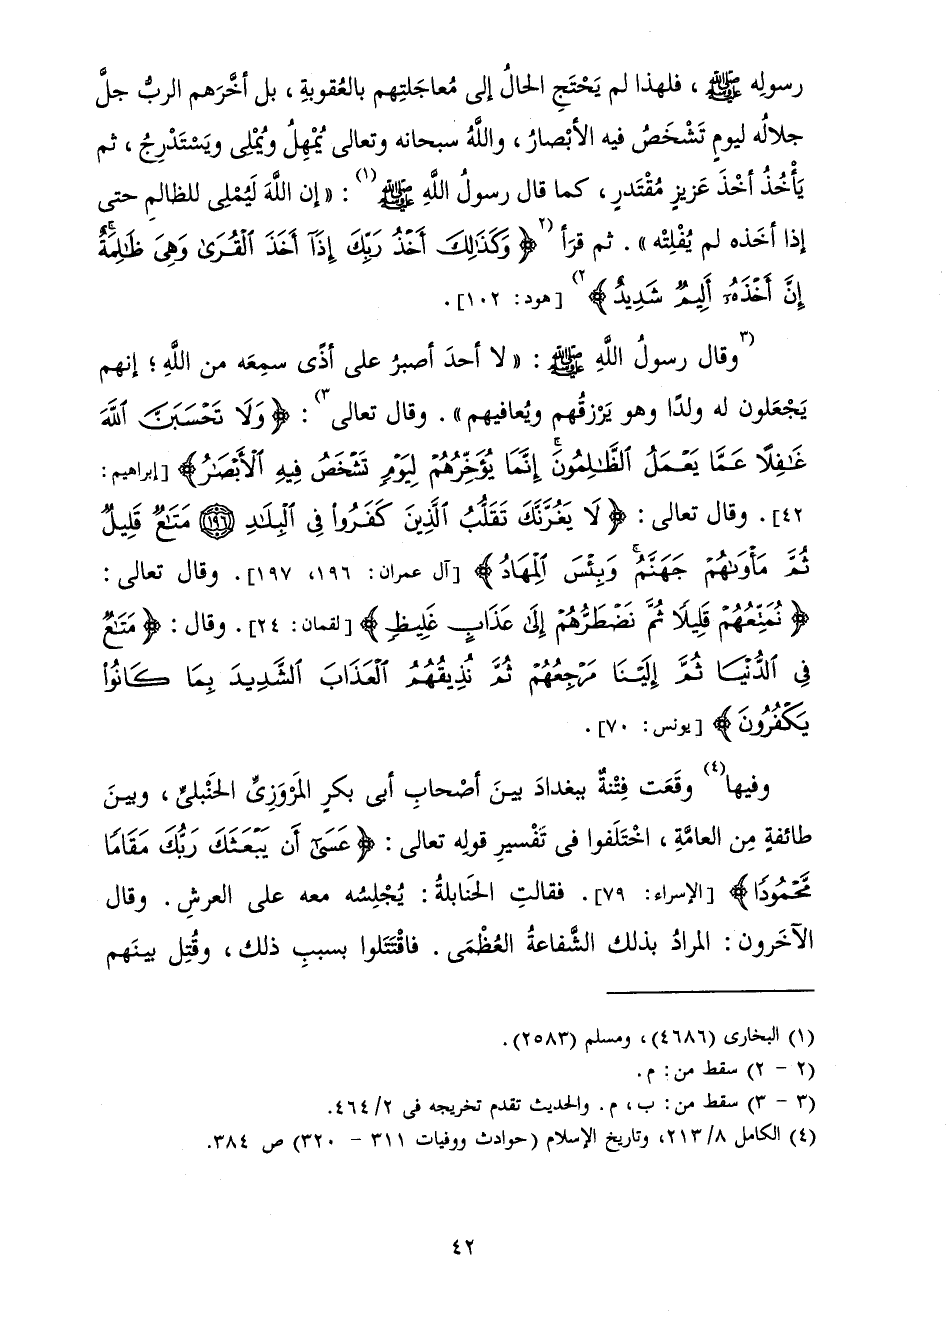 رسولِه ﷺ ، فلهذا لم يَحْتَجِ الحالُ إلى مُعاجَلتِهم بالعُقوبةِ ، بل أخَّرَهم الربُّ جلَّ
جلالُه ليومٍ تَشْخَصُ فيه الأبْصارُ ، واللَّهُ سبحانه وتعالى يُمْهِلُ ويُمْلِى ويَسْتَدْرِجُ ، ثم
يَأْخُذُ أخْذَ عَزيزٍ مُقْتَدرٍ ، كما قال رسولُ اللَّهِ ﷺ(١) : « إن اللَّهَ لَيُمْلِى للظالمِ حتى
إذا أخَذه لم يُفْلِتْه » . ثم قرَأ (٢﴿ وَكَذَٰلِكَ أَخْذُ رَبِّكَ إِذَآ أَخَذَ ٱلْقُرَىٰ وَهِىَ ظَٰلِمَةٌۚ
إِنَّ أَخْذَهُۥٓ أَلِيمٌ شَدِيدٌ ﴾٢) [هود: ١٠٢] .
(٣وقال رسولُ اللَّهِ ﷺ : « لا أحدَ أصبرُ على أذًى سمِعَه من اللَّهِ ؛ إنهم
يَجْعَلون له ولدًا وهو يَرْزقُهم ويُعافيهم » . وقال تعالى٣) : ﴿ وَلَا تَحْسَبَنَّ ٱللَّهَ
غَٰفِلًا عَمَّا يَعْمَلُ ٱلظَّٰلِمُونَۚ إِنَّمَا يُؤَخِّرُهُمْ لِيَوْمٍ تَشْخَصُ فِيهِ ٱلْأَبْصَٰرُ ﴾ [إبراهيم :
٤٢] . وقال تعالى : ﴿ لَا يَغُرَّنَّكَ تَقَلُّبُ ٱلَّذِينَ كَفَرُوا۟ فِى ٱلْبِلَٰدِ ﴿١٩٦﴾ مَتَٰعٌ قَلِيلٌ
ثُمَّ مَأْوَىٰهُمْ جَهَنَّمُۚ وَبِئْسَ ٱلْمِهَادُ ﴾ [آل عمران: ١٩٦، ١٩٧] . وقال تعالى :
﴿ نُمَتِّعُهُمْ قَلِيلًا ثُمَّ نَضْطَرُّهُمْ إِلَىٰ عَذَابٍ غَلِيظٍ ﴾ [لقمان: ٢٤] . وقال : ﴿ مَتَٰعٌ
فِى ٱلدُّنْيَا ثُمَّ إِلَيْنَا مَرْجِعُهُمْ ثُمَّ نُذِيقُهُمُ ٱلْعَذَابَ ٱلشَّدِيدَ بِمَا كَانُوا۟
يَكْفُرُونَ ﴾ [يونس: ٧٠] .
وفيها(٤) وقَعَت فِتْنةٌ ببغدادَ بينَ أصْحابِ أبى بكرٍ المَرْوَزِىِّ الحَنْبلىِّ ، وبينَ
طائفةٍ مِن العامَّةِ ، اخْتَلَفوا فى تَفْسيرِ قولِه تعالى : ﴿ عَسَىٰٓ أَن يَبْعَثَكَ رَبُّكَ مَقَامًا
مَّحْمُودًا ﴾ [الإسراء: ٧٩] . فقالتِ الحَنابلةُ : يُجْلِسُه معه على العرشِ . وقال
الآخَرون : المرادُ بذلك الشَّفاعةُ العُظْمَى . فاقْتَتَلوا بسببِ ذلك ، وقُتِل بينَهم
(١) البخارى (٤٦٨٦) ، ومسلم (٢٥٨٣) .
(٢ - ٢) سقط من: م .
(٣ - ٣) سقط من: ب ، م . والحديث تقدم تخريجه فى ٤٦٤/٢.
(٤) الكامل ٢١٣/٨، وتاريخ الإسلام (حوادث ووفيات ٣١١ - ٣٢٠) ص ٣٨٤.
٤٢